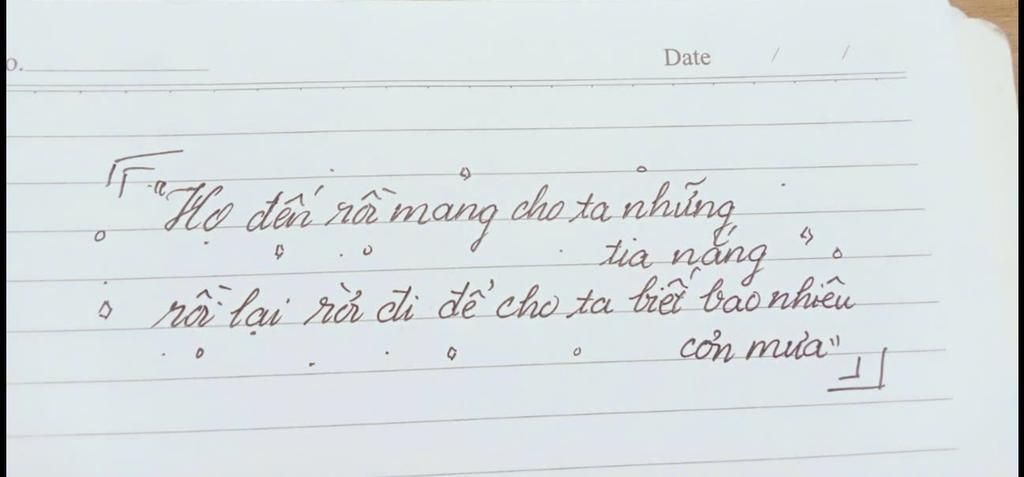 o.
Date / /
"Họ đến rồi mang cho ta những
tia nắng
rồi lại rời đi để cho ta biết bao nhiêu
cơn mưa"